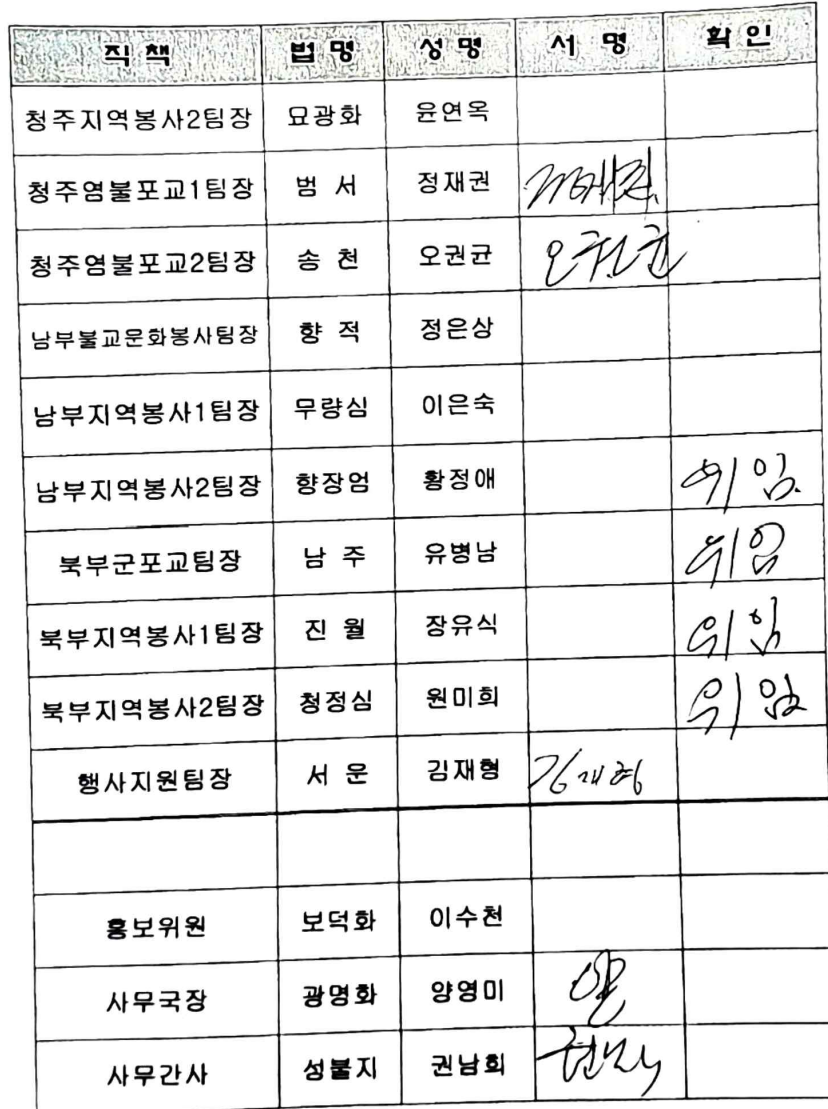 직 책 법 명 성 명 서 명 확 인
청주지역봉사2팀장 묘광화 윤연옥
청주염불포교1팀장 범 서 정재권
청주염불포교2팀장 송 천 오권균 오권균
남부불교문화봉사팀장 향 적 정은상
남부지역봉사1팀장 무량심 이은숙
남부지역봉사2팀장 향장엄 황정애 위임.
북부군포교팀장 남 주 유병남 위임
북부지역봉사1팀장 진 월 장유식 위임
북부지역봉사2팀장 청정심 원미희 위임
행사지원팀장 서 운 김재형 김재형
홍보위원 보덕화 이수천
사무국장 광명화 양영미
사무간사 성불지 권남희